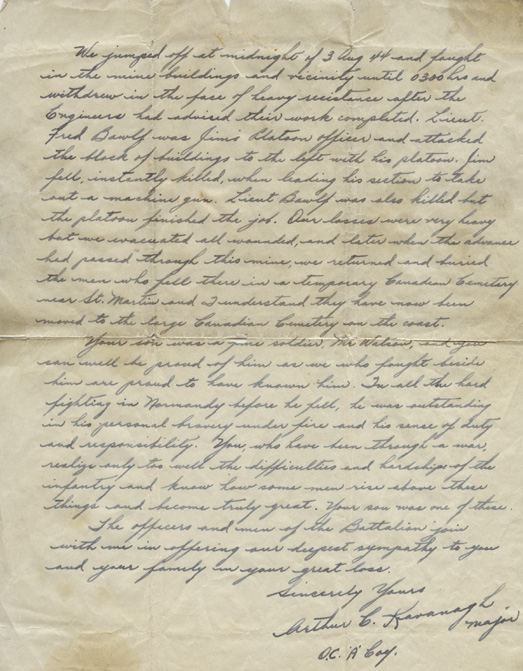 We jumped off at midnight of 3 Aug 44 and fought
in the mine buildings and vicinity until 0300 hrs and
withdrew in the face of heavy resistance after the
Engineers had advised their work completed. Lieut.
Fred Bawlf was Jim's Platoon officer and attacked
the block of buildings to the left with his platoon. Jim
fell, instantly killed, when leading his section to take
out a machine gun. Lieut Bawlf was also killed but
the platoon finished the job. Our losses were very heavy
but we evacuated all wounded, and later when the advance
had passed through this mine, we returned and buried
the men who fell there in a temporary Canadian Cemetery
near St. Martin and I understand they have now been
moved to the large Canadian Cemetery on the coast.
Your son was a fine soldier, Mr Watson, and you
can well be proud of him as we who fought beside
him are proud to have known him. In all the hard
fighting in Normandy before he fell, he was outstanding
in his personal bravery under fire and his sense of duty
and responsibility. You, who have been through a war,
realize only too well the difficulties and hardships of the
infantry and know how some men rise above these
things and become truly great. Your son was one of these.
The officers and men of the Battalion join
with me in offering our deepest sympathy to you
and your family in your great loss.
Sincerely Yours
Arthur C. Kavanagh
Major
O.C. "A" Coy.